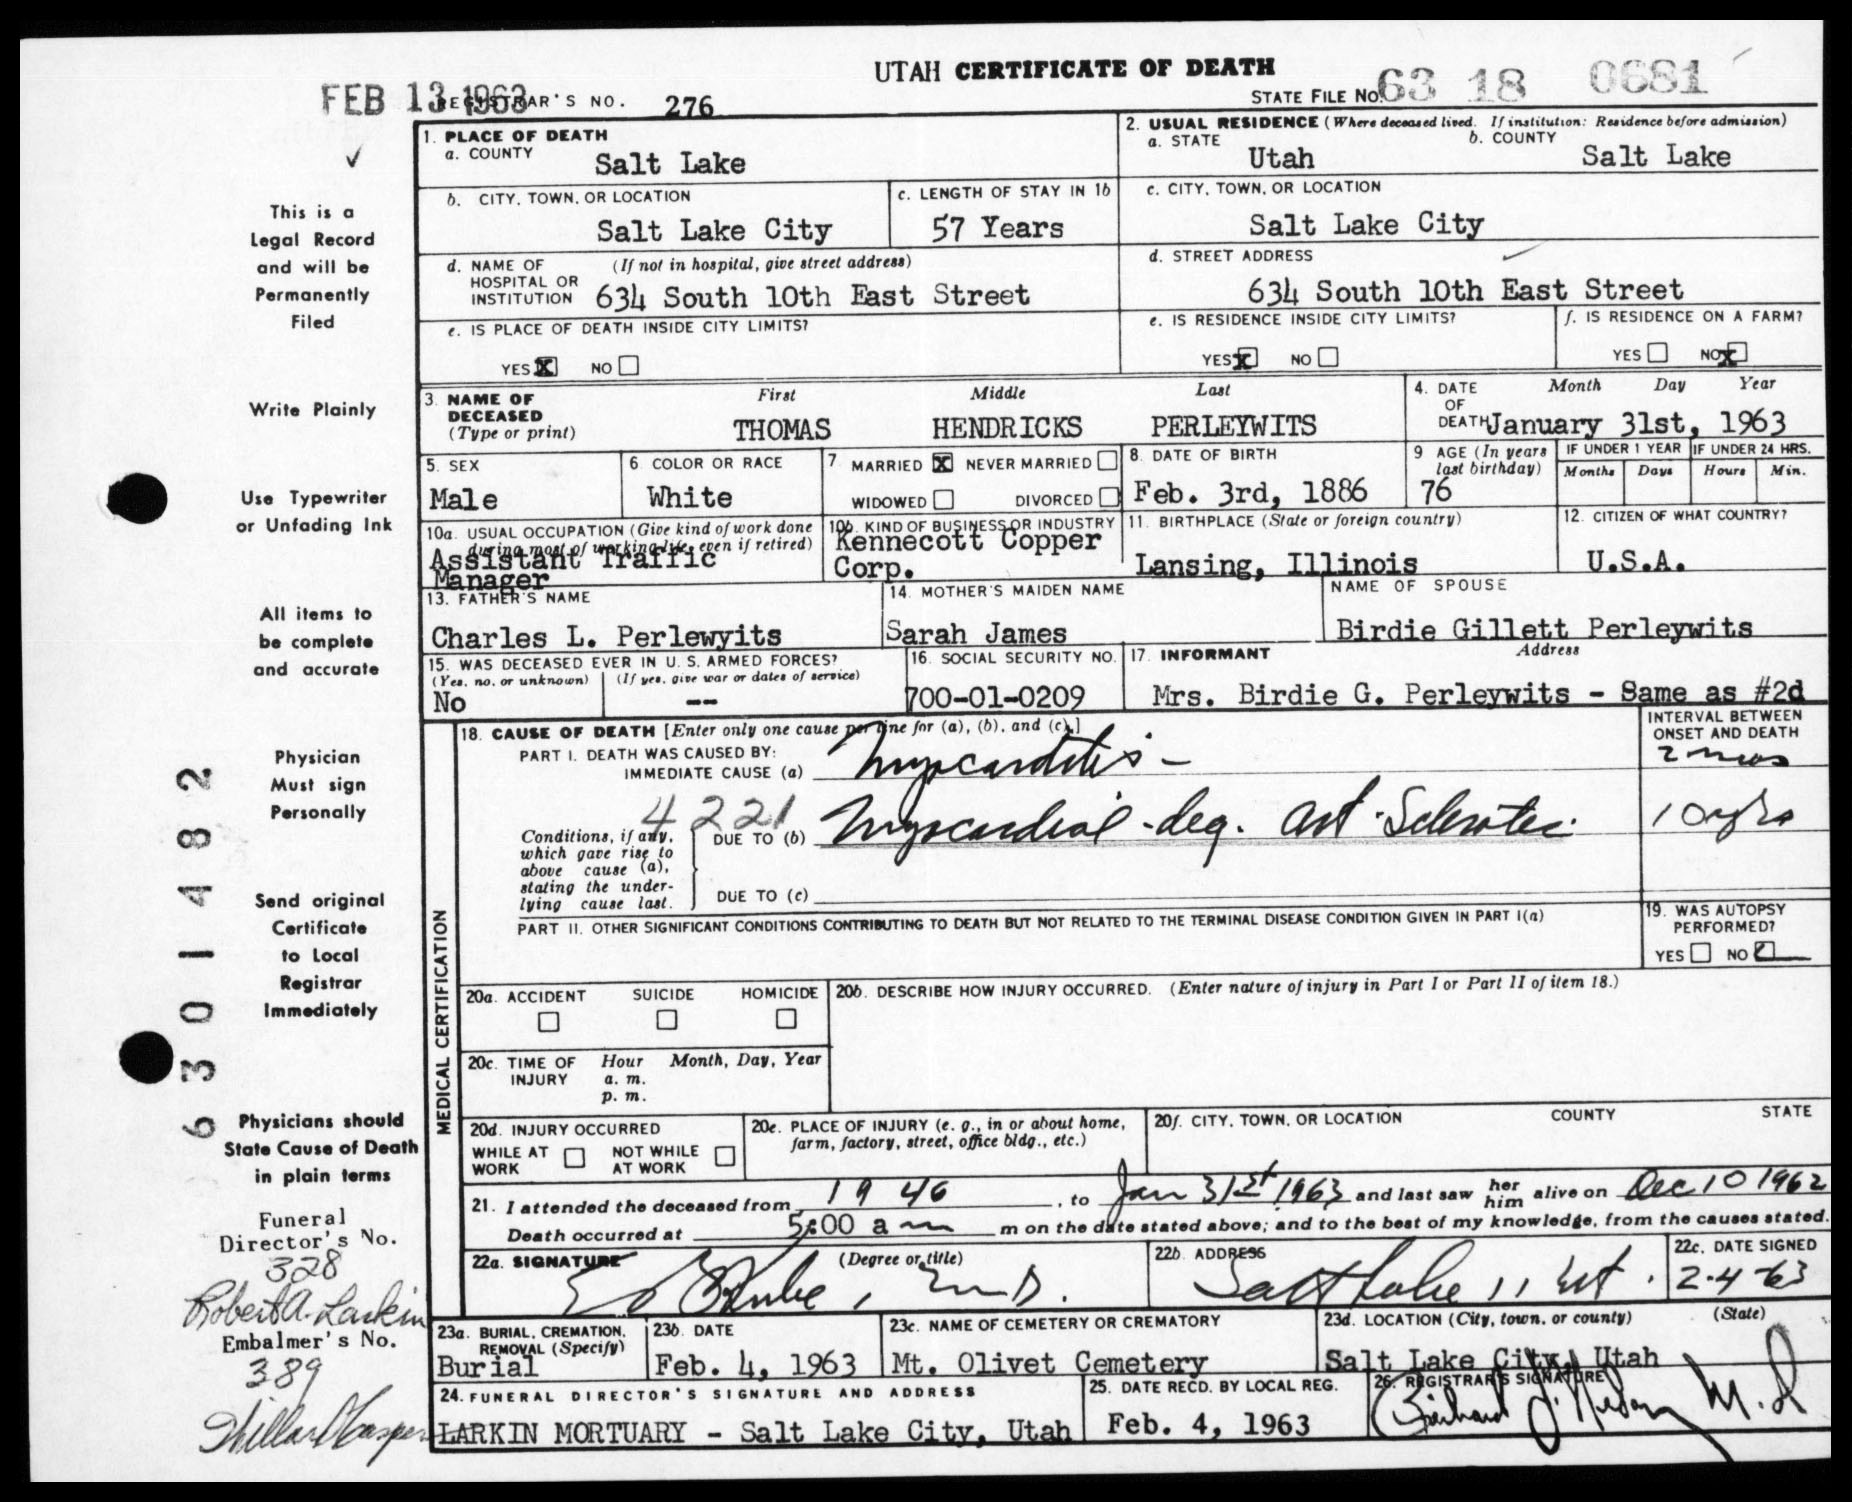 UTAH CERTIFICATE OF DEATH
FEB 13 1963 REGISTRAR'S NO. 276 STATE FILE NO. 63 18 0681
1. PLACE OF DEATH
a. COUNTY Salt Lake
2. USUAL RESIDENCE (Where deceased lived. If institution: Residence before admission)
a. STATE Utah b. COUNTY Salt Lake
b. CITY, TOWN, OR LOCATION Salt Lake City
c. LENGTH OF STAY IN 1b 57 Years
c. CITY, TOWN, OR LOCATION Salt Lake City
d. NAME OF HOSPITAL OR INSTITUTION (If not in hospital, give street address) 634 South 10th East Street
d. STREET ADDRESS 634 South 10th East Street
e. IS PLACE OF DEATH INSIDE CITY LIMITS?
YES X NO
e. IS RESIDENCE INSIDE CITY LIMITS?
YES X NO
f. IS RESIDENCE ON A FARM?
YES NO X
3. NAME OF DECEASED (Type or print)
First Middle Last
THOMAS HENDRICKS PERLEYWITS
4. DATE OF DEATH Month Day Year
January 31st, 1963
5. SEX Male
6. COLOR OR RACE White
7. MARRIED X NEVER MARRIED
WIDOWED DIVORCED
8. DATE OF BIRTH Feb. 3rd, 1886
9 AGE (In years last birthday) 76
IF UNDER 1 YEAR Months Days
IF UNDER 24 HRS. Hours Min.
10a. USUAL OCCUPATION (Give kind of work done during most of working life, even if retired)
Assistant Traffic
Manager
10b. KIND OF BUSINESS OR INDUSTRY
Kennecott Copper
Corp.
11. BIRTHPLACE (State or foreign country) Lansing, Illinois
12. CITIZEN OF WHAT COUNTRY? U.S.A.
13. FATHER'S NAME Charles L. Perlewyits
14. MOTHER'S MAIDEN NAME Sarah James
NAME OF SPOUSE Birdie Gillett Perleywits
15. WAS DECEASED EVER IN U.S. ARMED FORCES?
(Yes, no, or unknown) (If yes, give war or dates of service)
No --
16. SOCIAL SECURITY NO. 700-01-0209
17. INFORMANT Address
Mrs. Birdie G. Perleywits - Same as #2d
MEDICAL CERTIFICATION
18. CAUSE OF DEATH [Enter only one cause per line for (a), (b), and (c).]
INTERVAL BETWEEN ONSET AND DEATH
PART I. DEATH WAS CAUSED BY:
IMMEDIATE CAUSE (a) Myocarditis - 2 mos
4221
Conditions, if any, which gave rise to above cause (a), stating the underlying cause last.
DUE TO (b) Myocardial deg. Art. Sclerotic 10 yrs
DUE TO (c)
PART II. OTHER SIGNIFICANT CONDITIONS CONTRIBUTING TO DEATH BUT NOT RELATED TO THE TERMINAL DISEASE CONDITION GIVEN IN PART I(a)
19. WAS AUTOPSY PERFORMED?
YES NO
20a. ACCIDENT SUICIDE HOMICIDE
20b. DESCRIBE HOW INJURY OCCURRED. (Enter nature of injury in Part I or Part II of item 18.)
20c. TIME OF INJURY Hour Month, Day, Year
a. m.
p. m.
20d. INJURY OCCURRED
WHILE AT WORK NOT WHILE AT WORK
20e. PLACE OF INJURY (e. g., in or about home, farm, factory, street, office bldg., etc.)
20f. CITY, TOWN, OR LOCATION COUNTY STATE
21. I attended the deceased from 1946, to Jan 31st 1963 and last saw her him alive on Dec 10 1962
Death occurred at 5:00 a m m on the date stated above; and to the best of my knowledge, from the causes stated.
22a. SIGNATURE (Degree or title) M.D.
22b. ADDRESS Salt Lake 11 Ut.
22c. DATE SIGNED 2-4-63
23a. BURIAL, CREMATION, REMOVAL (Specify) Burial
23b. DATE Feb. 4, 1963
23c. NAME OF CEMETERY OR CREMATORY Mt. Olivet Cemetery
23d. LOCATION (City, town, or county) (State)
Salt Lake City, Utah
24. FUNERAL DIRECTOR'S SIGNATURE AND ADDRESS
LARKIN MORTUARY - Salt Lake City, Utah
25. DATE RECD. BY LOCAL REG. Feb. 4, 1963
26. REGISTRAR'S SIGNATURE M.D.
This is a
Legal Record
and will be
Permanently
Filed
Write Plainly
Use Typewriter
or Unfading Ink
All items to
be complete
and accurate
Physician
Must sign
Personally
Send original
Certificate
to Local
Registrar
Immediately
Physicians should
State Cause of Death
in plain terms
Funeral
Director's No.
328
Robert A. Larkin
Embalmer's No.
389
6301482